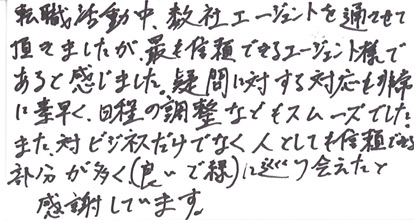 転職活動中、数社エージェントを通させて
頂きましたが、最も信頼できるエージェント様で
あると感じました。疑問に対する対応も非常
に素早く、日程の調整などもスムーズでした。
また対ビジネスだけでなく人としても信頼できる
部分が多く、(良いご縁)に巡り会えたと
感謝しています。